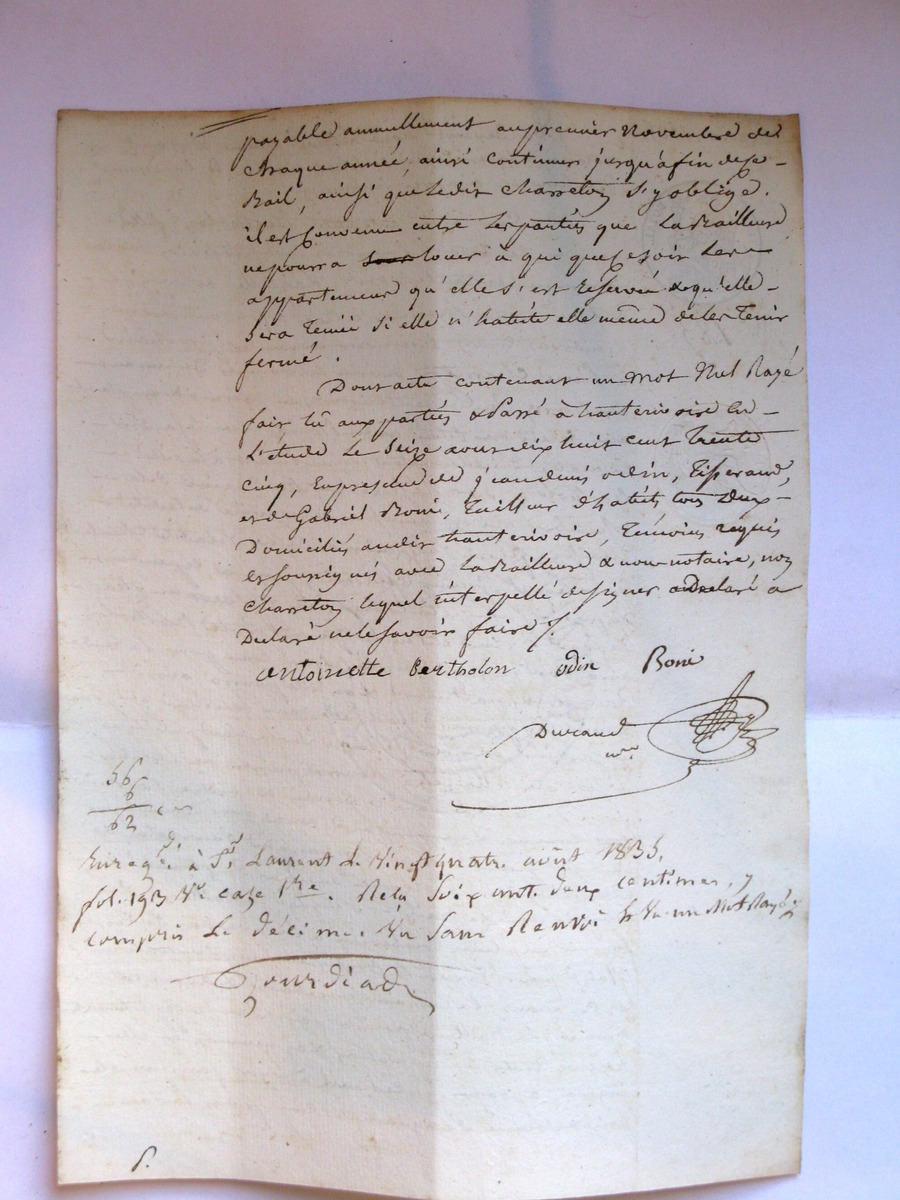 payable annuellement au premier Novembre de
chaque année, ainsi continuer jusqu'a fin de ce
Bail, ainsi que ledit Charreton s'y oblige.
il est Convenu entre les parties que la Bailleuse
ne pourra sous louer à qui que ce soit les
appartement qu'elle s'est Reservée & qu'elle
sera tenue si elle n'habite elle même de les tenir
fermé.
Dont acte contenant un mot Nul Rayé
fait lû aux parties & Passé à hauterivoire En
L'étude Le Seize aout dix huit cent trente
cinq, En présence de jean denis odin, Tisserand,
et de Gabriel Boni, Tailleur d'habits tous deux
Domiciliés audit hauterivoire, Témoins requis
Et soussignés avec La Bailleuse & nous notaire, non
Charreton lequel interpellé de signer a Declaré a
Declaré ne le savoir faire /.
antoinette Bertholon odin Boni
Durand
nre
56
6
62 c
Enregé. à St Laurent Le Vingt quatre août 1835,
fol. 193 Vo. case 1re. Reçu Soixante deux centimes, y
compris Le décime. Vu Sans Renvoi & Vu un Mot Rayé